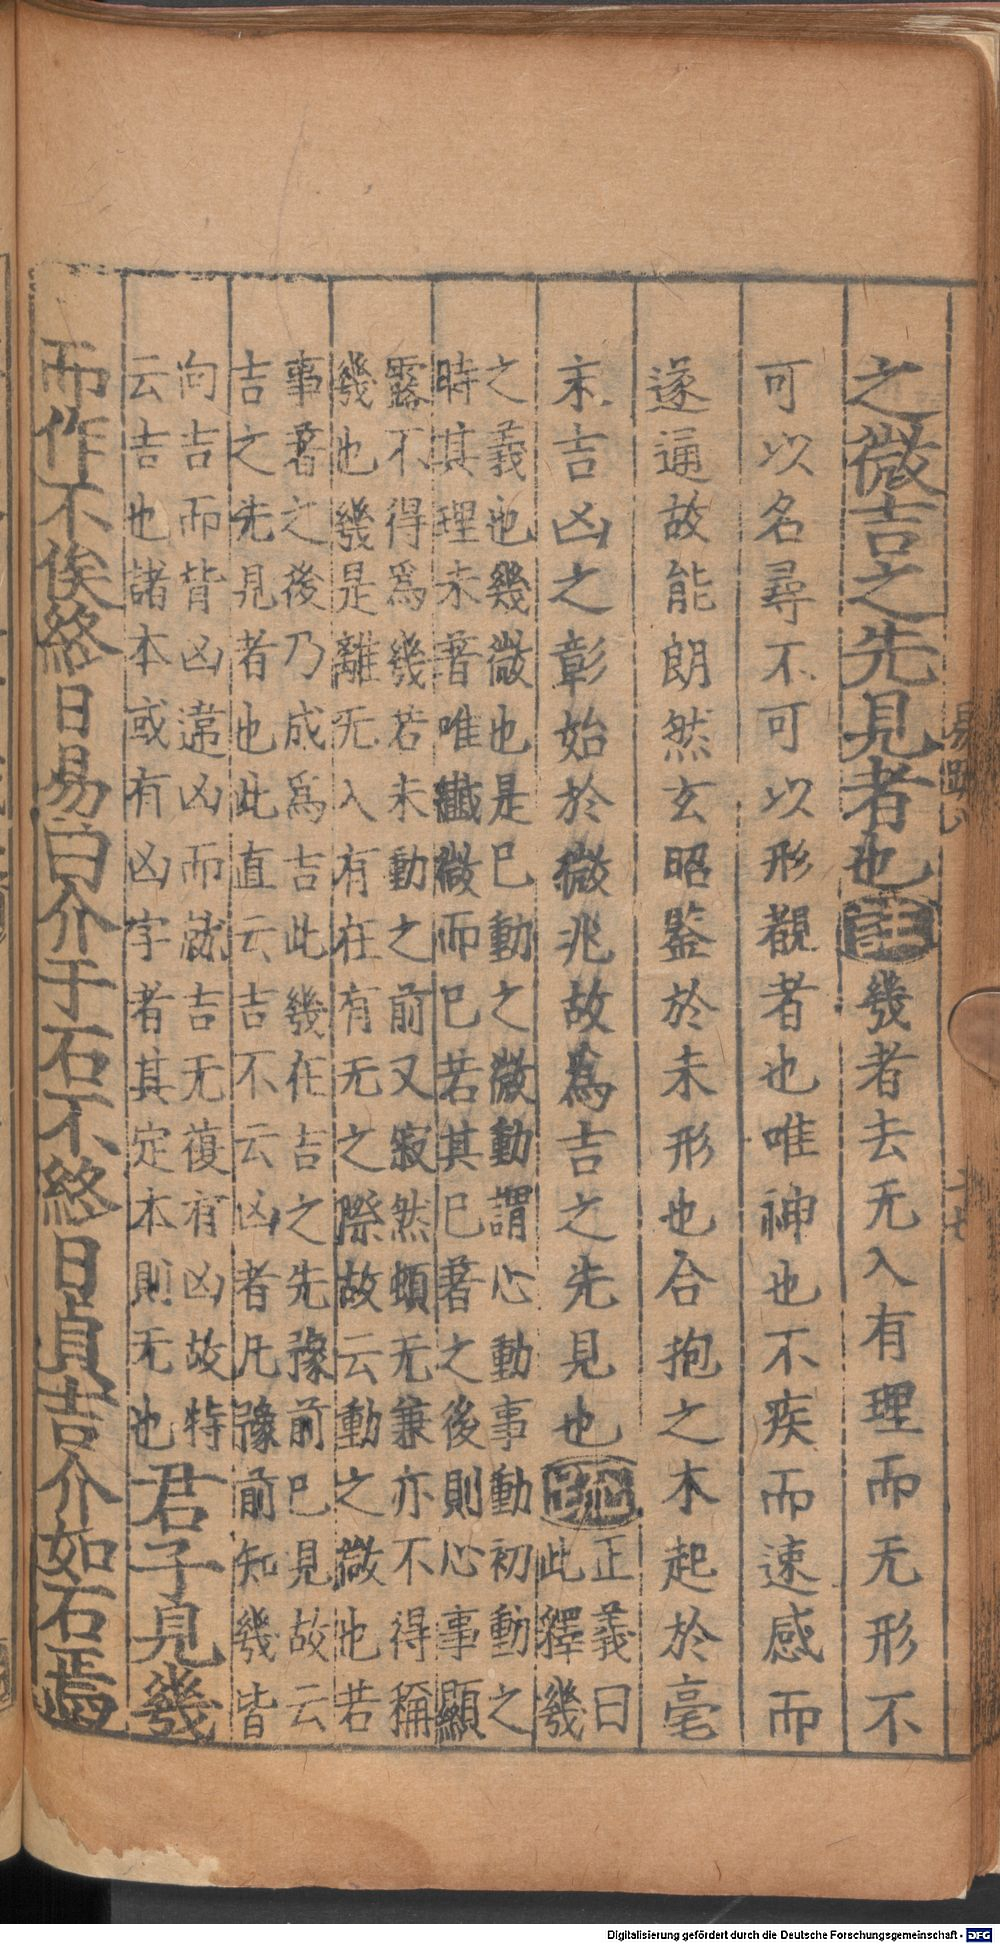 之微吉之先見者也註幾者去无入有理而无形不
可以名尋不可以形覩者也唯神也不疾而速感而
遂通故能朗然玄昭鑒於未形也合抱之木起於毫
末吉凶之彰始於微兆故爲吉之先見也疏正義曰
此釋幾
之義也幾微也是已動之微動謂心動事動初動之
時其理未著唯纖微而已若其已著之後則心事顯
露不得爲幾若未動之前又寂然頓无兼亦不得稱
幾也幾是離无入有在有无之際故云動之微也若
事著之後乃成爲吉此幾在吉之先豫前已見故云
吉之先見者也此直云吉不云凶者凡豫前知幾皆
向吉而背凶違凶而就吉无復有凶故特
云吉也諸本或有凶字者其定本則无也君子見幾
而作不俟終日易曰介于石不終日貞吉介如石焉
易疏八
二十七
Digitalisierung gefördert durch die Deutsche Forschungsgemeinschaft - DFG